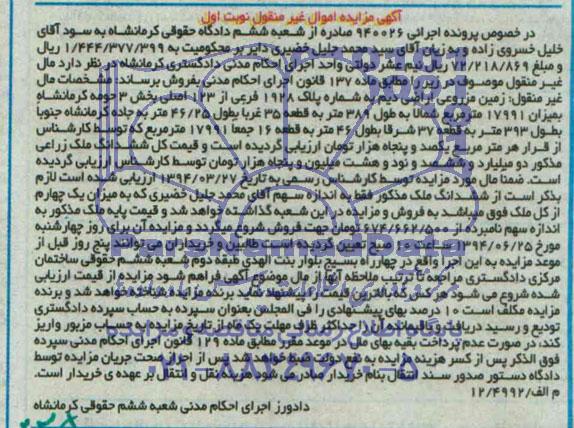 آگهی مزایده اموال غیر منقول نوبت اول
در خصوص پرونده اجرائی ۹۴۰۰۲۶ صادره از شعبه ششم دادگاه حقوقی کرمانشاه به سود آقای
خلیل خسروی زاده و به زیان آقای سید محمد جلیل خضیری دایر بر محکومیت به ۱/۴۴۴/۳۷۷/۳۹۹ ریال
و مبلغ ۷۲/۲۱۸/۸۶۹ ریال نیم عشر دولتی واحد اجرای احکام مدنی دادگستری کرمانشاه در نظر دارد مال
غیر منقول موصوف در زیر را مطابق ماده ۱۳۷ قانون اجرای احکام مدنی بفروش برساند: مشخصات مال
غیر منقول: زمین مزروعی اراضی دیم به شماره پلاک ۱۹۲۸ فرعی از ۱۲۳ اصلی بخش ۳ حومه کرمانشاه
بمیزان ۱۷۹۹۱ مترمربع شمالا به طول ۳۸۹ متر به قطعه ۳۵ غربا بطول ۴۶/۲۵ متر به جاده کرمانشاه جنوبا
بطول ۳۹۳ متر به قطعه ۳۷ شرقا بطول ۴۶ متر به قطعه ۱۶ جمعا ۱۷۹۹۱ مترمربع که توسط کارشناس
از قرار هر متر مربع یکصد و پنجاه هزار تومان ارزیابی گردیده است و قیمت کل ششدانگ ملک زراعی
مذکور دو میلیارد و ششصد و نود و هشت میلیون و پنجاه هزار تومان توسط کارشناس ارزیابی گردیده
است. ضمنا مال مورد مزایده توسط کارشناس رسمی به تاریخ ۱۳۹۴/۰۳/۲۷ ارزیابی شده است لازم
بذکر است از ششدانگ ملک مذکور فقط به اندازه سهم آقای محمد جلیل خضیری که به میزان یک چهارم
از کل ملک فوق میباشد به فروش و مزایده در این شعبه گذاشته خواهد شد و قیمت پایه ملک مذکور به
اندازه سهم نامبرده از ۶۷۴/۶۶۲/۵۰۰ تومان جهت فروش شروع میگردد و مزایده آن برای روز چهارشنبه
مورخ ۱۳۹۴/۰۶/۲۵ ساعت صبح تعیین گردیده است طالبین و خریداران می توانند پنج روز قبل از
موعد مزایده به این اجرا واقع در چهارراه بسیج بلوار بنت الهدی طبقه دوم شعبه ششم حقوقی ساختمان
مرکزی دادگستری مراجعه تا ترتیب ملاحظه آنها از مال موضوع آگهی فراهم شود مزایده از قیمت ارزیابی
شده شروع می شود هر کس که بالاترین قیمت را پیشنهاد نماید برنده مزایده شناخته خواهد شد و برنده
مزایده مکلف است ۱۰ درصد بهای پیشنهادی را فی المجلس بعنوان سپرده به حساب سپرده دادگستری
تودیع و رسید دریافت و مابقی را حداکثر ظرف مهلت یک ماه از تاریخ مزایده به حساب مزبور واریز
کند، در صورت عدم پرداخت بقیه بهای مال در موعد مقرر مطابق ماده ۱۲۹ قانون اجرای احکام مدنی سپرده
فوق الذکر پس از کسر هزینه مزایده به نفع دولت ضبط خواهد شد پس از احراز صحت جریان مزایده توسط
دادگاه دستور صدور سند انتقال بنام خریدار صادر می شود هزینه نقل و انتقال بر عهده ی خریدار است.
م الف/۱۲/۴۹۹۲
دادورز اجرای احکام مدنی شعبه ششم حقوقی کرمانشاه
۰۲۱-۸۸۳۴۹۶۷۰-۵